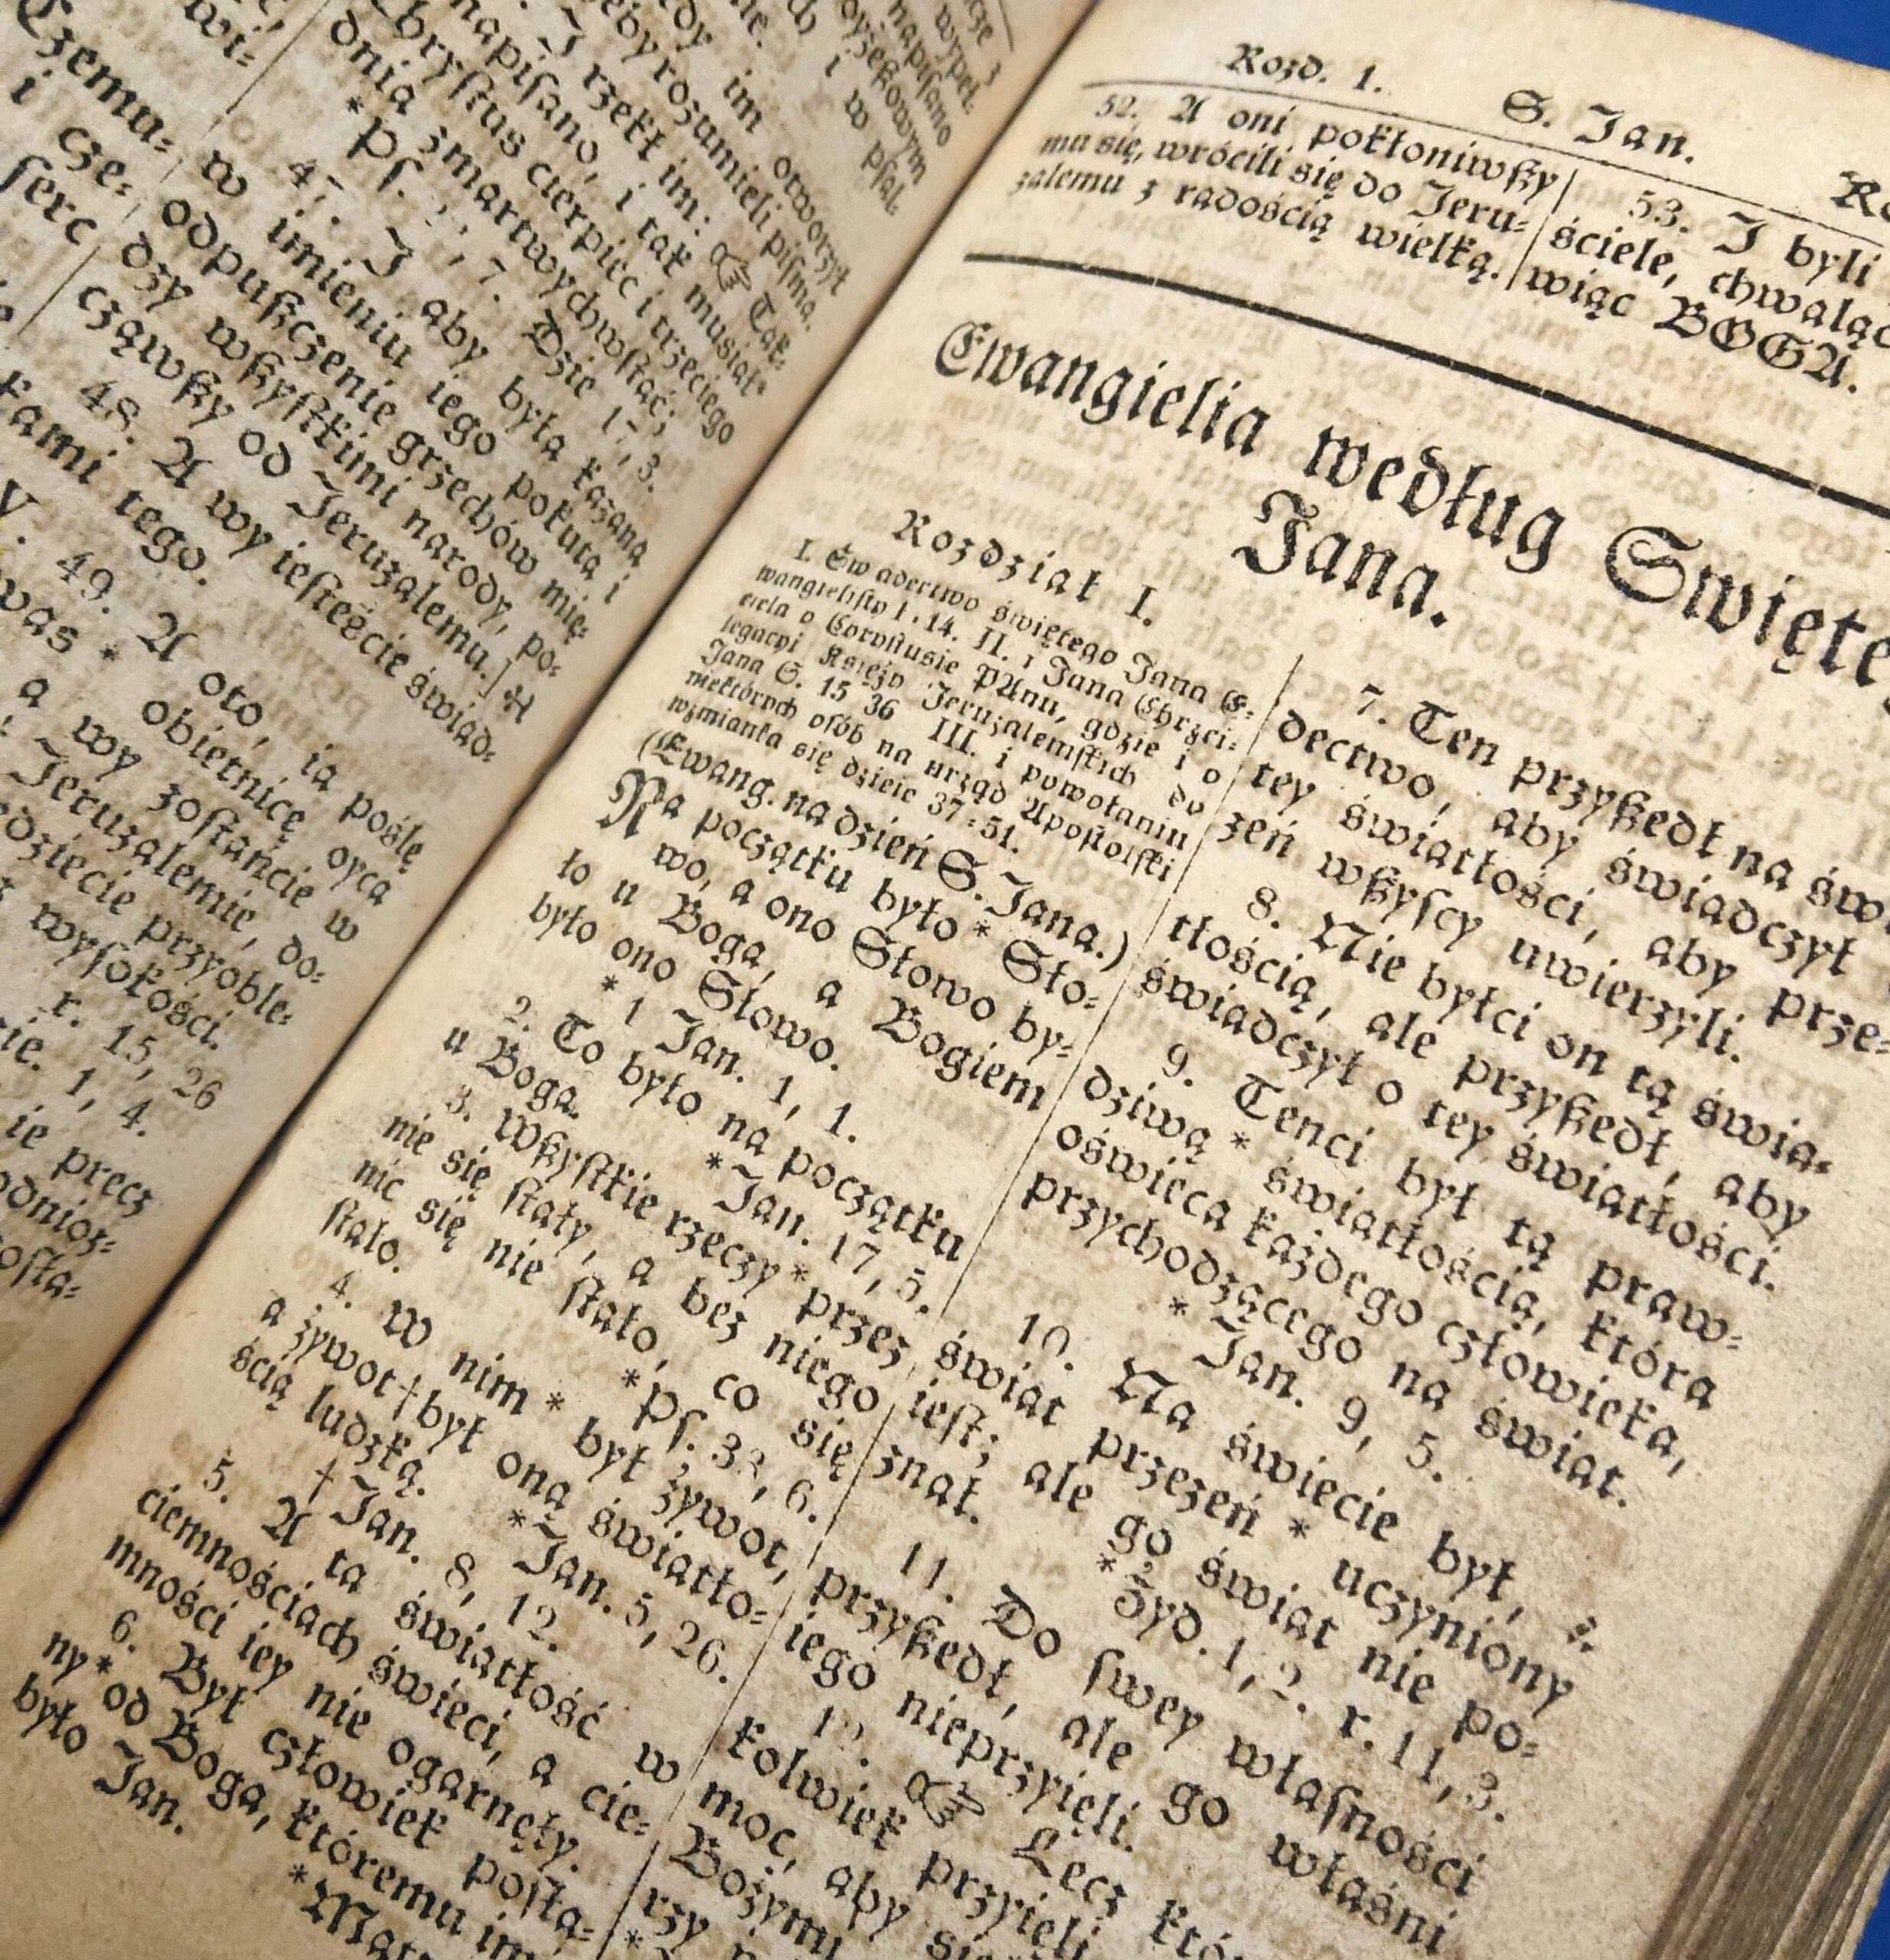 Czemu-
i cze-
serc
kami tego.
V. 49. A oto, ia poślę
was * obietnicę oyca
a wy zostańcie w
Jeruzalemie, do-
dziecie przyoble-
wysokości.
r. 15, 26
1, 4.
ie precz
odnios-
osta-
napisano
w Psal.
im otworzył
żeby rozumieli pisma.
J rzekł im: ☞ Tak
napisano, i tak musiał
Chrystus cierpieć i trzeciego
dnia zmartwychwstać;
* Ps. 7. Dzie 17, 3.
47. J aby była kazana
w imieniu iego pokuta i
odpuszczenie grzechów mię-
dzy wszystkimi narody, po-
cząwszy od Jeruzalemu.]
48. A wy iesteście świad-
Rozd. 1. S. Jan.
52. A oni pokłoniwszy
mu się, wrócili się do Jeru-
zalemu z radością wielką.
53. J byli
ściele, chwaląc
wiąc BOGA.
Ewangielia według Swięte
Jana.
Rozdział I.
I. Swiadectwo świętego Jana E-
wangielisty 1. 14. II. i Jana Chrzci-
ciela o Chrystusie PAnu, gdzie i o
legacyi Księży Jeruzalemskich do
Jana S. 15 36 III. i powołaniu
niektórych osób na urząd Apostolski
wzmianka się dzieie 37-51.
(Ewang. na dzień S. Jana.)
Na początku było * Sło-
wo, a ono Słowo by-
ło u Boga, a Bogiem
było ono Słowo.
* 1 Jan. 1, 1.
2. To było na początku
u Boga. * Jan. 17, 5.
3. Wszystkie rzeczy * przez
nie się stały, a bez niego
nic się nie stało, co się
stało. * Ps. 33, 6.
4. W nim * był żywot,
a żywot † był oną światło-
ścią ludzką. * Jan. 5, 26.
† Jan. 8, 12.
5. A ta światłość w
ciemnościach świeci, a cie-
mności iey nie ogarnęły.
6. Był człowiek posła-
ny * od Boga, któremu imię
było Jan.
7. Ten przyszedł na świa-
dectwo, aby świadczył o
tey światłości, aby prze-
zeń wszyscy uwierzyli.
8. Nie byłci on tą świa-
tłością, ale przyszedł, aby
świadczył o tey światłości.
9. Tenci był tą praw-
dziwą * światłością, która
oświeca każdego człowieka,
przychodzącego na świat.
* Jan. 9, 5.
10. Na świecie był, a
świat przezeń * uczyniony
iest; ale go świat nie po-
znał. * Żyd. 1, 2. r. 11, 3.
11. Do swey własności
przyszedł, ale go właśni
iego nieprzyięli.
12. ☞ Lecz któ-
kolwiek przyięli
moc, aby się
Bożymi
rzy